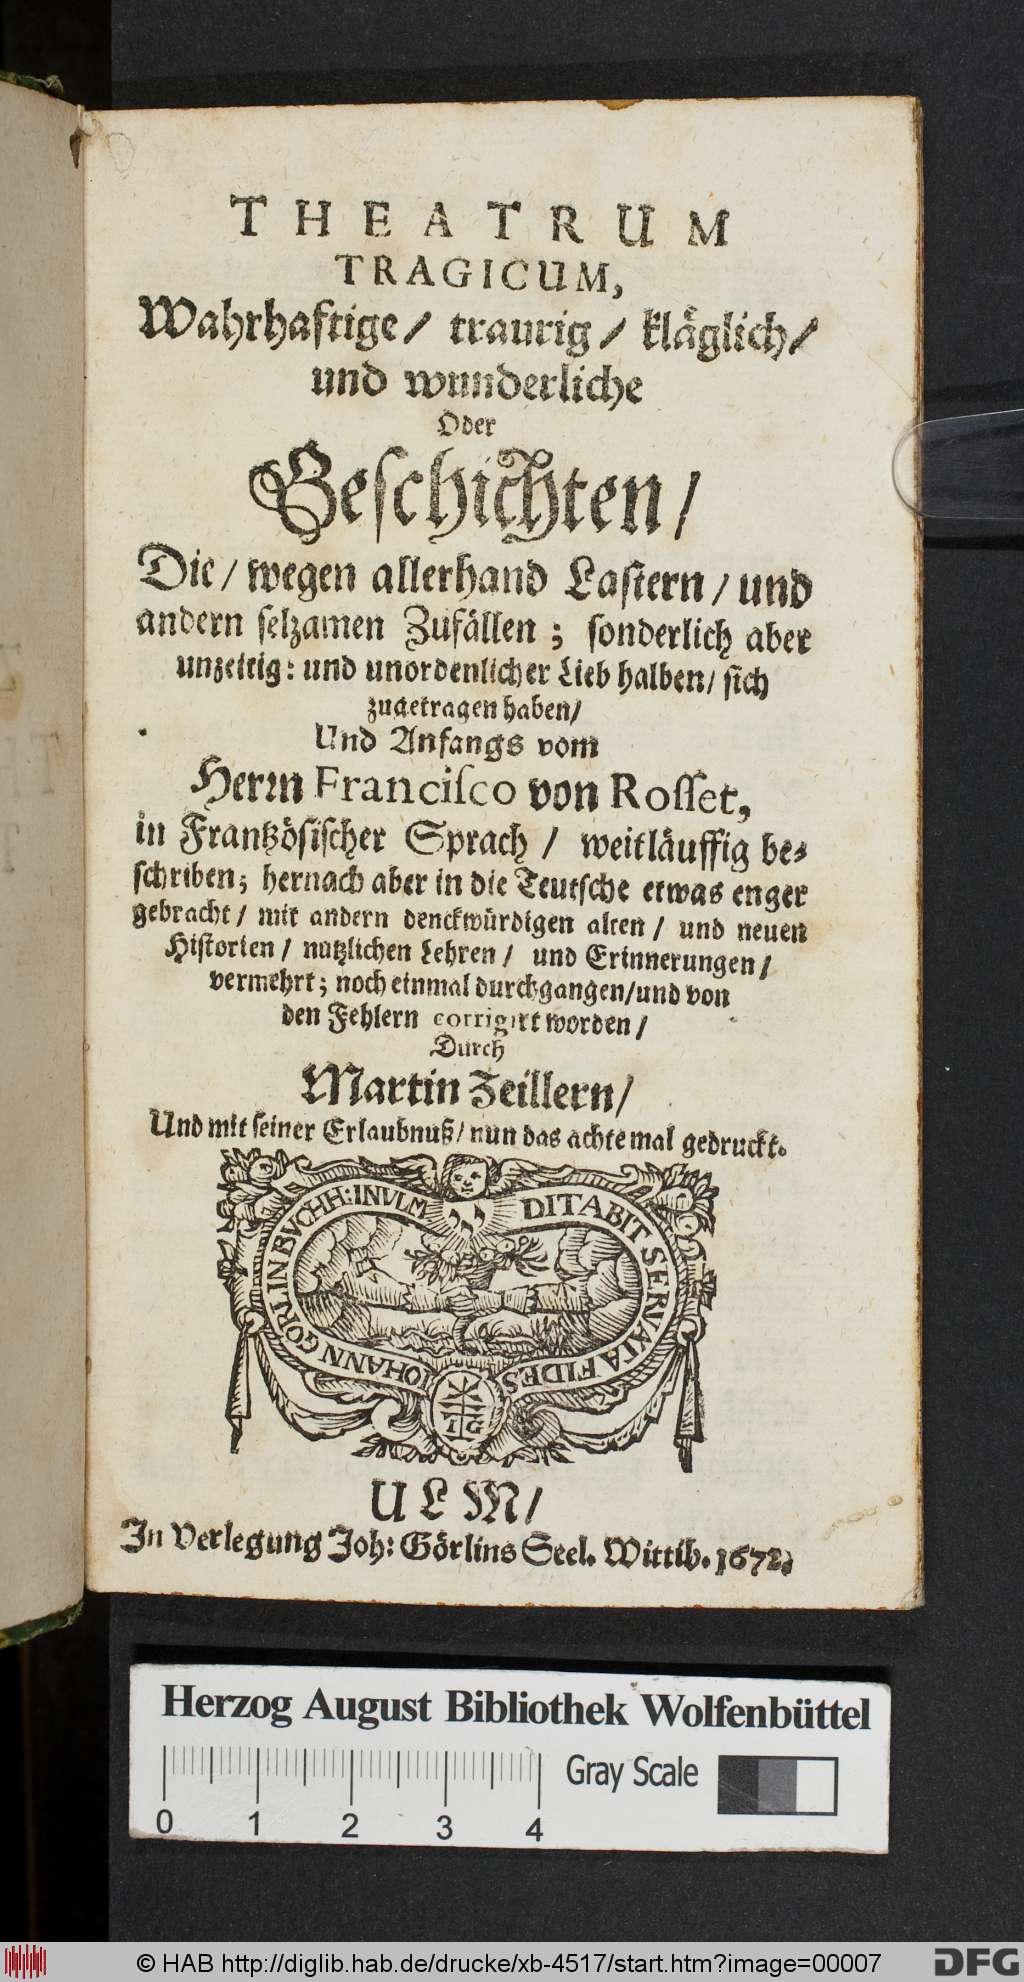 THEATRUM
TRAGICUM,
Wahrhaftige/ traurig/ kläglich/
und wunderliche
Oder
Geschichten/
Die/ wegen allerhand Lastern/ und
andern selzamen Zufällen; sonderlich aber
unzeitig: und unordenlicher Lieb halben/ sich
zugetragen haben/
Und Anfangs vom
Herrn Franciſco von Roſſet,
in Frantzösischer Sprach/ weitläuffig be-
schriben; hernach aber in die Teutsche etwas enger
gebracht/ mit andern denckwürdigen alten/ und neuen
Historien/ nutzlichen Lehren/ und Erinnerungen/
vermehrt; noch einmal durchgangen/und von
den Fehlern corrigirt worden/
Durch
Martin Zeillern/
Und mit seiner Erlaubnuß/ nun das achte mal gedruckt.
IOHANN GÖRLIN BVCHH: IN VLM
DITABIT SERVATA FIDES
IG
ULM/
In Verlegung Joh: Görlins Seel. Wittib. 1672.
Herzog August Bibliothek Wolfenbüttel
Gray Scale
0 1 2 3 4
© HAB http://diglib.hab.de/drucke/xb-4517/start.htm?image=00007
DFG